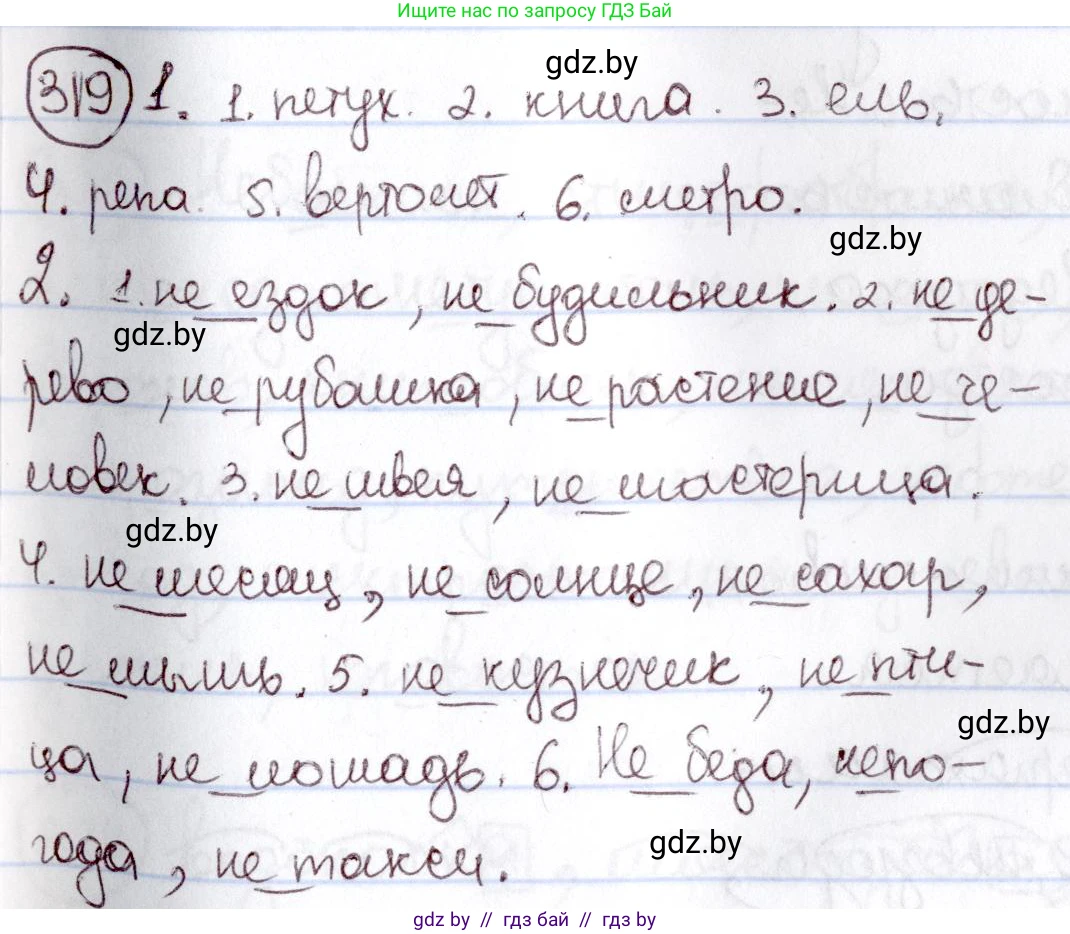 Ищите нас по запросу ГДЗ Бай
gdz.by
319 1. 1. петух. 2. книга. 3. ель.
4. репа. 5. вертолет. 6. метро.
gdz.by
2. 1. не ездок, не будильник. 2. не де-
gdz.by
рево, не рубашка, не растение, не че-
ловек. 3. не швея, не мастерица.
gdz.by
4. не месяц, не солнце, не сахар,
не мышь. 5. не кузнечик, не пти-
gdz.by
ца, не лошадь. 6. Не беда, непо-
gdz.by
года, не такси.
gdz by // гдз бай // гдз by